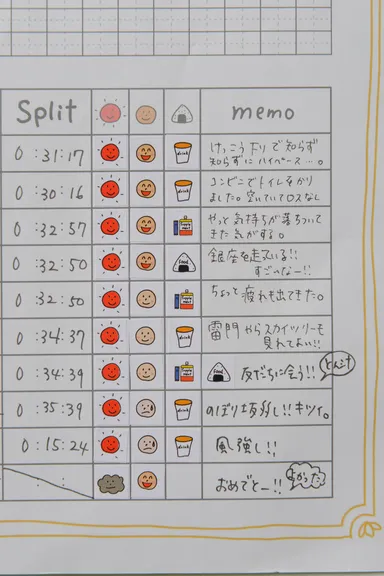 Split memo
0:31:17 drink けっこう下りで知らず
知らずにハイペース…。
0:30:16 drink コンビニでトイレをかり
ました。空いていてロスなし
0:32:57 やっと気持ちが落ちついて
きた気がする。
0:32:50 food 銀座を走ている!!
すごいなー!!
0:32:50 ちょっと疲れも出てきた。
0:34:37 drink 雷門やらスカイツリーも
見れてよい!!
0:34:39 food 友だちに会う!!
0:35:39 drink のぼり坂多し!!キツイ。
0:15:24 drink 風強し!!
: : おめでとー!! よかった!